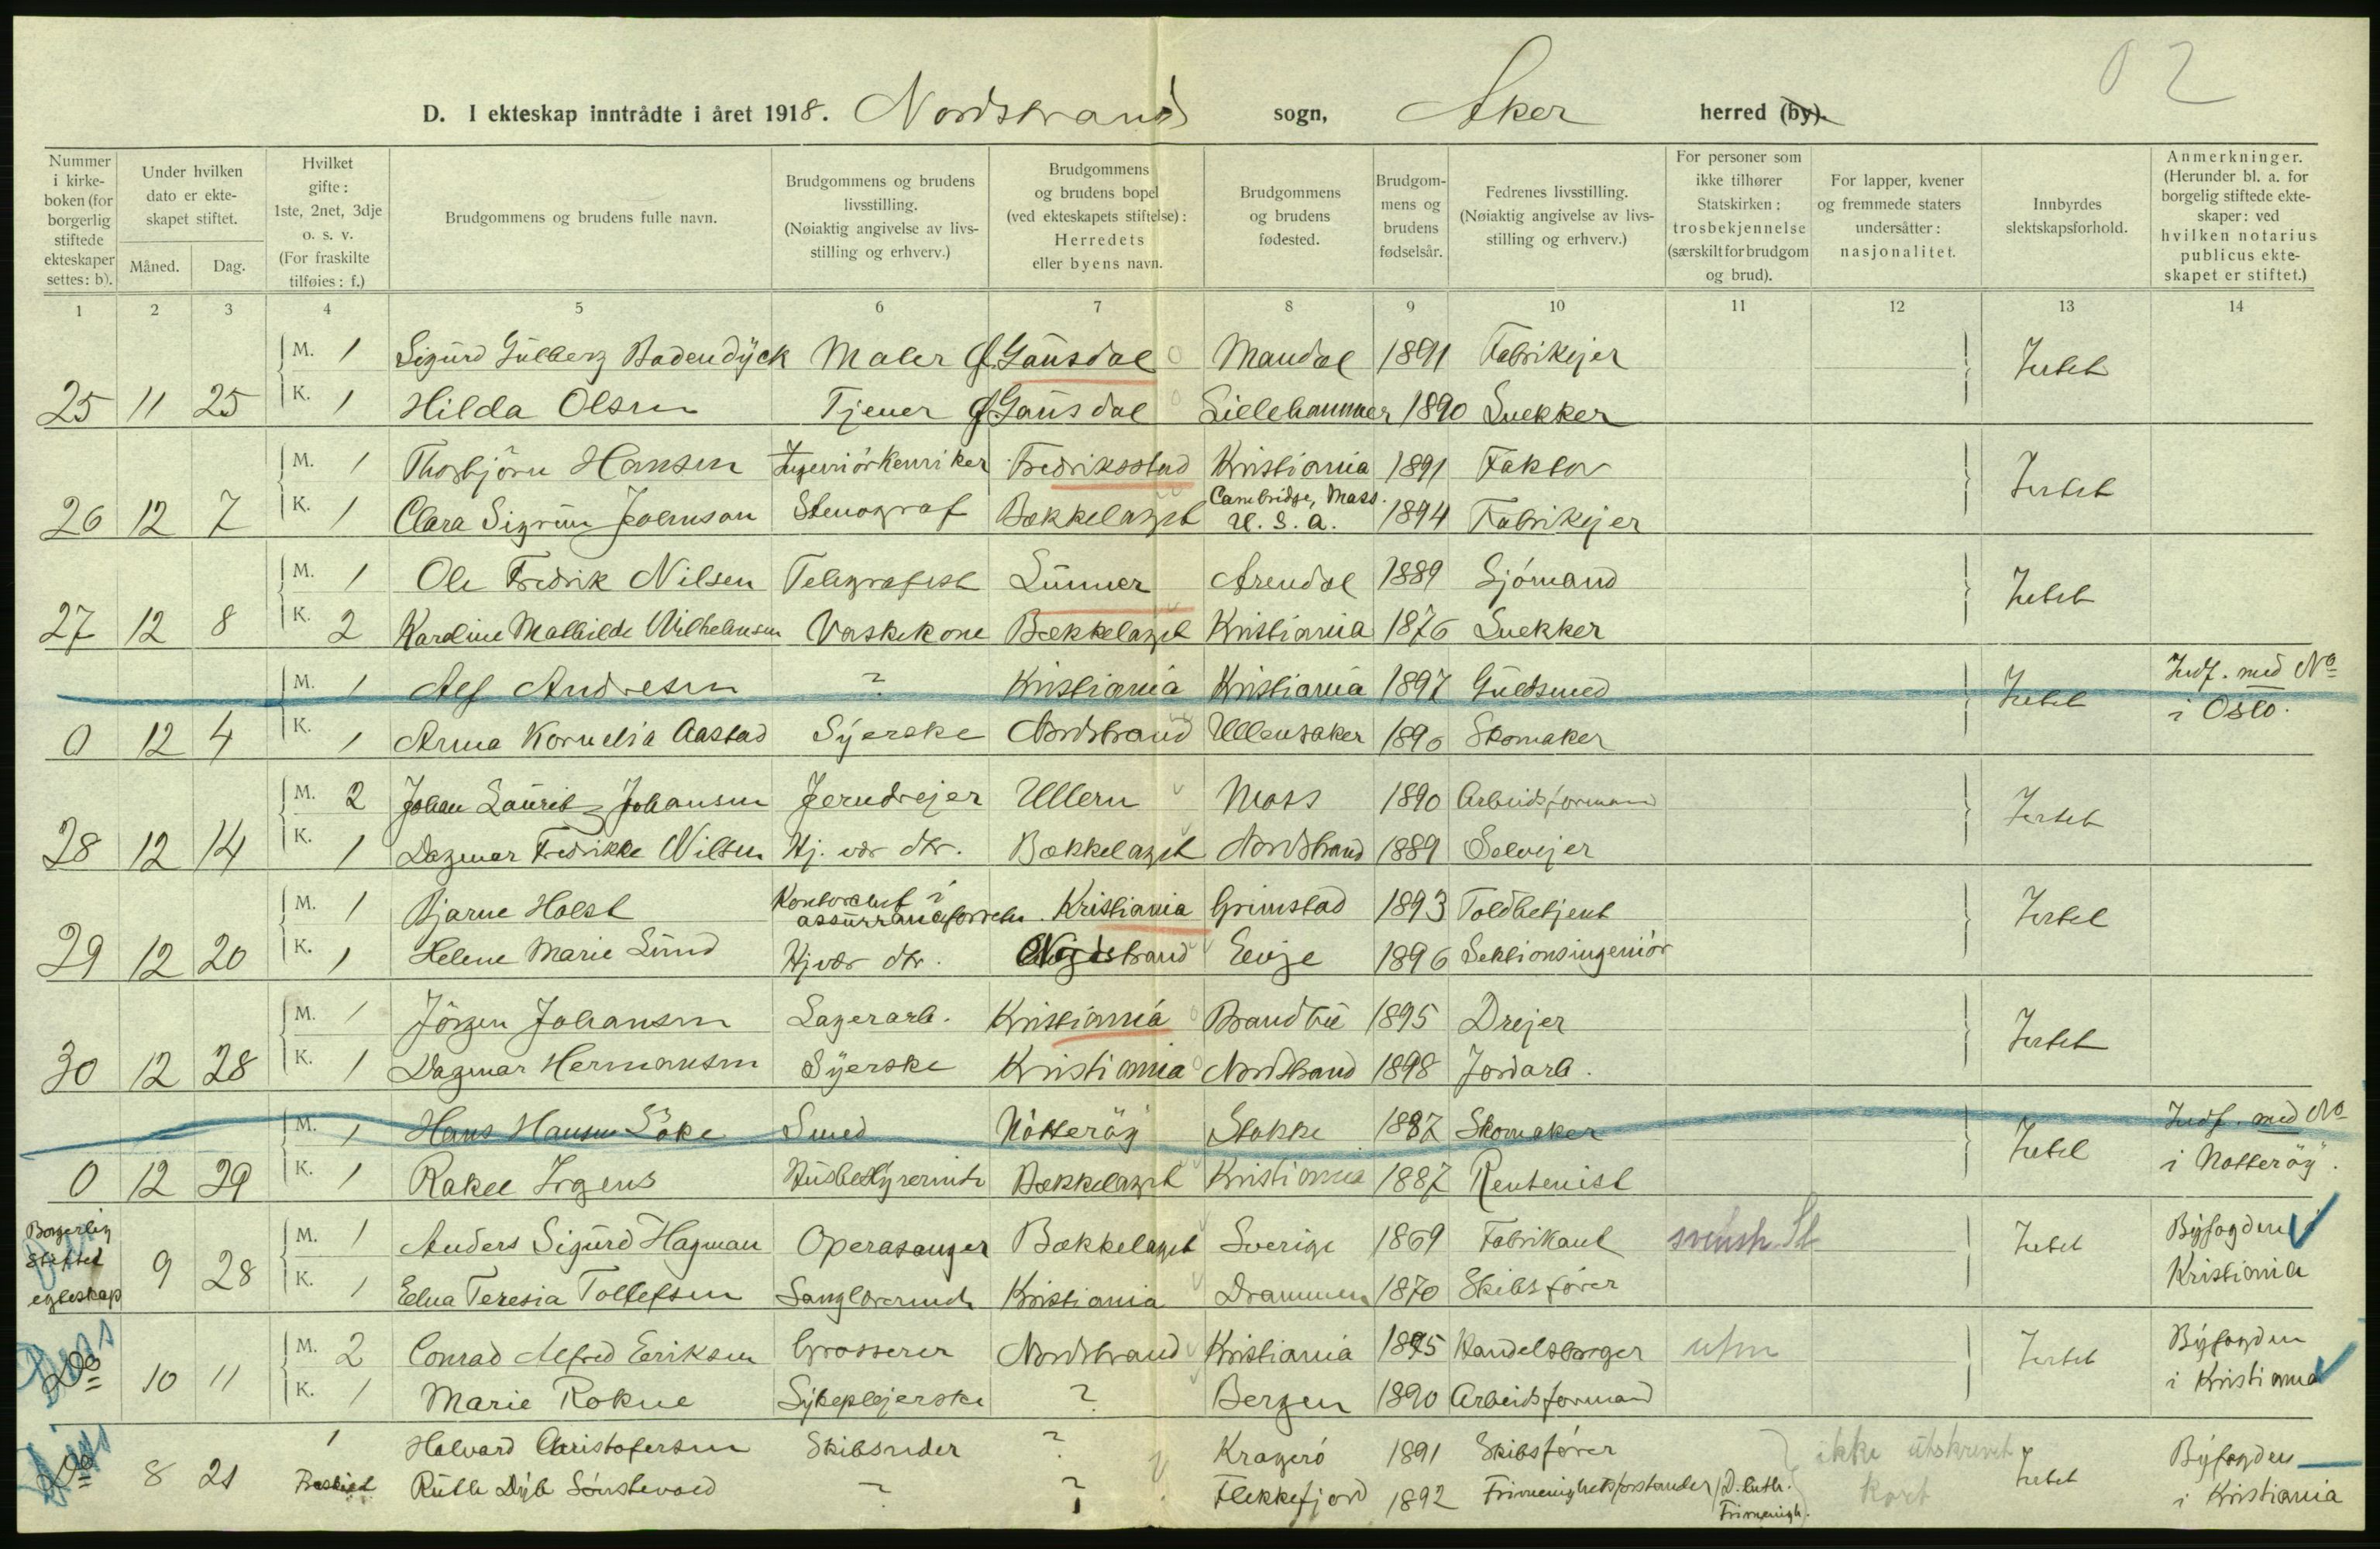 02
D. I ekteskap inntrådte i året 1918. Nordstrand sogn, Aker herred (by).
Nummer i kirkeboken (for borgerlig stiftede ekteskaper settes: b).
Under hvilken dato er ekteskapet stiftet.
Måned. Dag.
Hvilket gifte: 1ste, 2net, 3dje o. s. v. (For fraskilte tilføies: f.)
Brudgommens og brudens fulle navn.
Brudgommens og brudens livsstilling. (Nøiaktig angivelse av livsstilling og erhverv.)
Brudgommens og brudens bopel (ved ekteskapets stiftelse): Herredets eller byens navn.
Brudgommens og brudens fødested.
Brudgommens og brudens fødselsår.
Fedrenes livsstilling. (Nøiaktig angivelse av livsstilling og erhverv.)
For personer som ikke tilhører Statskirken: trosbekjennelse (særskilt for brudgom og brud).
For lapper, kvener og fremmede staters undersåtter: nasjonalitet.
Innbyrdes slektskapsforhold.
Anmerkninger. (Herunder bl. a. for borgelig stiftede ekteskaper: ved hvilken notarius publicus ekteskapet er stiftet.)
1 2 3 4 5 6 7 8 9 10 11 12 13 14
M. 1 Sigurd Gulberg Bodendyck Maler Ø. Gausdal Mandal 1891 Fabrikejer Intet
25 11 25 K. 1 Hilda Olsen Tjener Ø Gausdal Lillehammer 1890 Snekker
M. 1 Thorbjörn Hansen Ingeniörkemiker Fredriksstad Kristiania 1891 Faktor Intet
26 12 7 K. 1 Clara Sigrun Johnson Stenograf Bækkelaget Cambridge, Mass. U. S. A. 1894 Fabrikejer
M. 1 Ole Fredrik Nilsen Telegrafist Lunner Arendal 1889 Sjömand Intet
27 12 8 K. 2 Karoline Mathilde Wilhelmsen Vaskekone Bækkelaget Kristiania 1876 Snekker
M. 1 Alf Andresen ? Kristiania Kristiania 1897 Guldsmed Intet Indf. med No
0 12 4 K. 1 Anna Kornelia Aastad Syerske Nordstrand Ullensaker 1896 Skomaker i Oslo.
M. 2 Johan Laurits Johansen Jerndrejer Ullern Moss 1890 Arbeidsformand Intet
28 12 14 K. 1 Dagmar Fredrikke Nilsen Hj. vær. dtr. Bækkelaget Nordstrand 1889 Selvejer
M. 1 Bjarne Holst Kontorchef i assuranceforretn. Kristiania Grimstad 1893 Toldbetjent Intet
29 12 20 K. 1 Helene Marie Lund Hjvær dtr. Nordstrand Evje 1896 Sektionsingeniör
M. 1 Jörgen Johansen Lagerarb. Kristiania Brandbu 1895 Drejer Intet
30 12 28 K. 1 Dagmar Hermansen Syerske Kristiania Nordstrand 1898 Jordarb.
M. 1 Hans Hansen Söke Smed Nötteröy Stokke 1887 Skomaker Intet Indf. med No
0 12 29 K. 1 Rakel Irgens Husbestyrerinde Bækkelaget Kristiania 1887 Rentenist i Nötteröy.
Borgerlig Stiftet egteskap
M. 1 Anders Sigurd Hagman Operasanger Bækkelaget Sverige 1869 Fabrikant svensk St Intet Byfogden
9 28 K. 1 Edna Teresia Tollefsen Sanglærerinde Kristiania Drammen 1870 Skibsförer Kristiania
M. 2 Conrad Alfred Eriksen Grosserer Nordstrand Kristiania 1895 Handelsborger utm Intet Byfogden
Do 10 11 K. 1 Marie Rokne Sykeplejerske ? Bergen 1890 Arbeidsformand i Kristiania
1 Halvard Christofersen Skibsreder ? Kragerö 1891 Skibsförer ikke utskrevet Intet Byfogden
Do 8 21 Ruth Dyb Sönstevold ? ? Flekkefjord 1892 Frimenighetsforstander D. luth. Frimenigh. kort i Kristiania